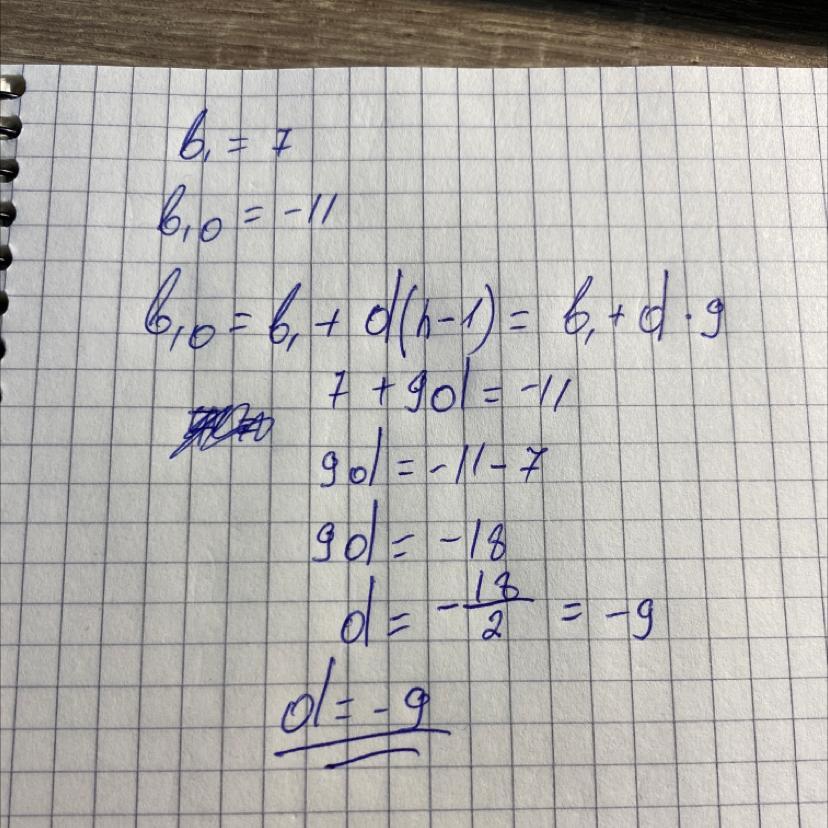 b₁ = 7
b₁₀ = -11
b₁₀ = b₁ + d(n-1) = b₁ + d · 9
7 + 9d = -11
9d = -11 - 7
9d = -18
d = -18/2 = -9
d = -9